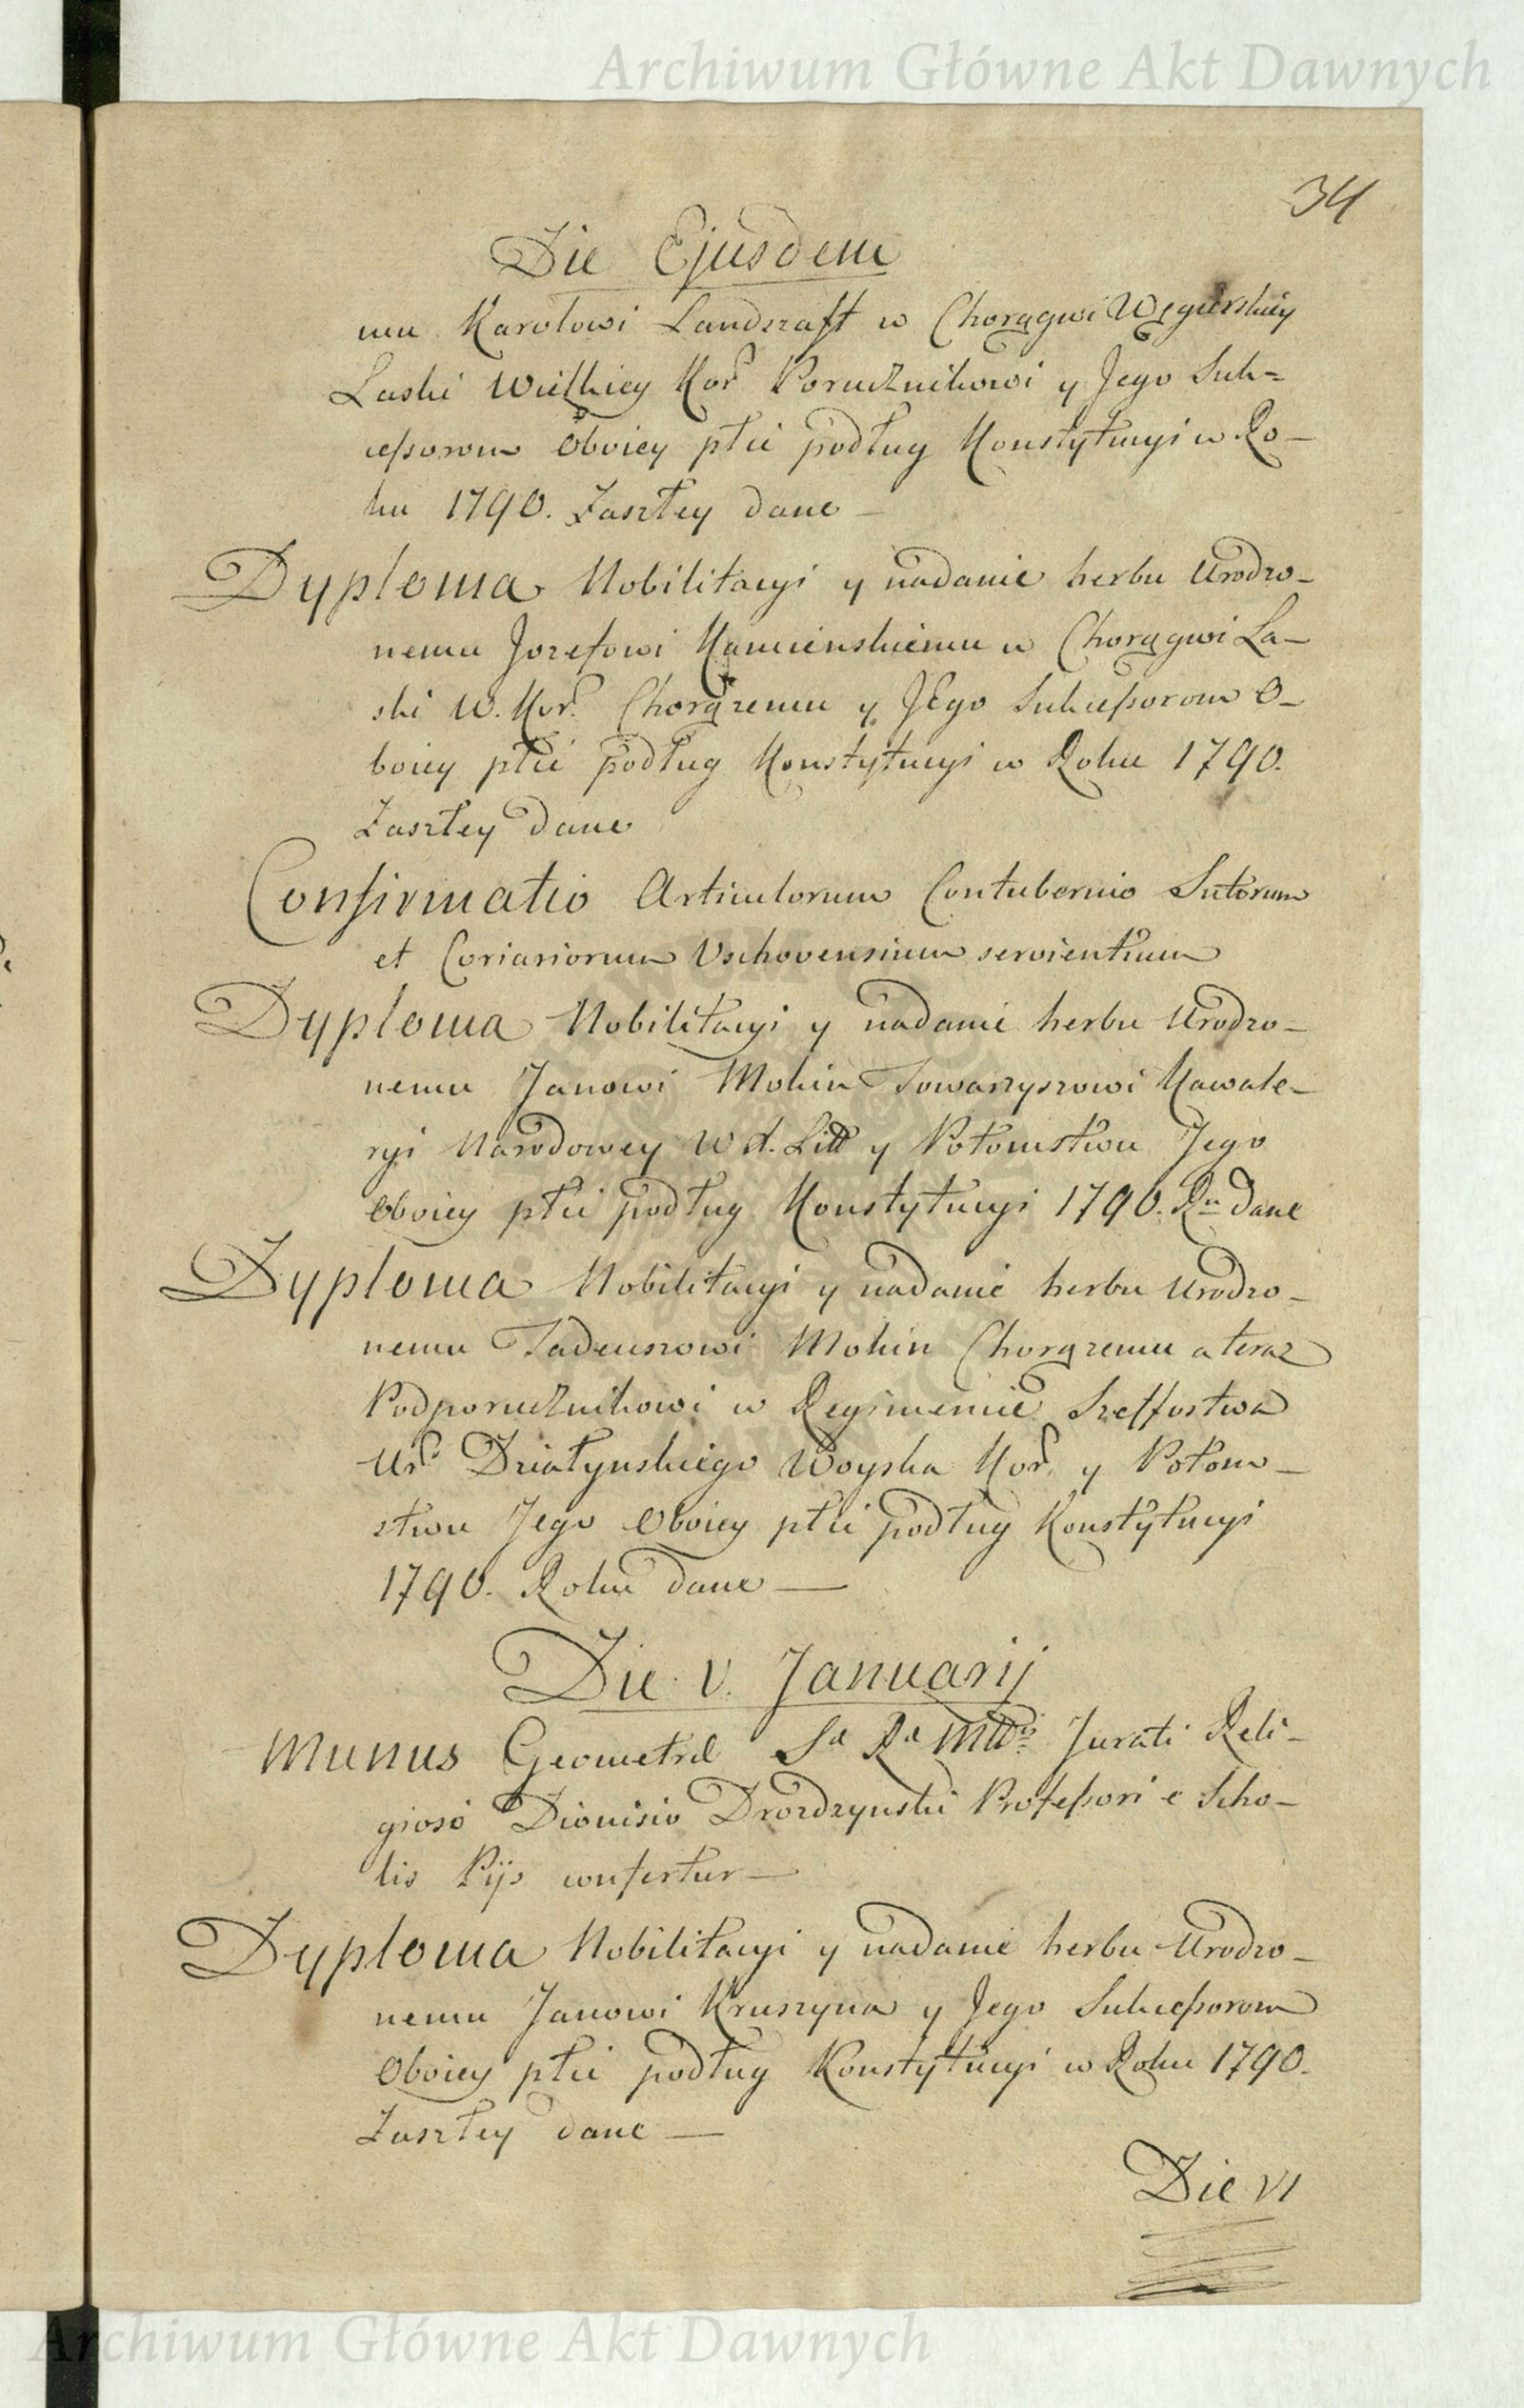 Archiwum Główne Akt Dawnych
34
Die Ejusdem
mu Karolowi Landszaft w Chorągwi Węgierskiey
Laski Wielkiey Kor. Porucznikowi y Jego Suk=
cessorom Oboiey płci podług Konstytucyi w Ro-
ku 1790. Zaszłey dane —
Dyploma Nobilitacyi y nadanie herbu Urodzo-
nemu Jozefowi Kamienskiemu w Chorągwi La-
ski W. Kor. Chorązemu y Jego Sukcessorom O-
boiey płci podług Konstytucyi w Roku 1790.
Zaszłey dane
Confirmatio Articulorum Contubernio Sutorum
et Coriariorum Vschovensium servientium
Dyploma Nobilitacyi y nadanie herbu Urodzo-
nemu Janowi Mohin Towarzyszowi Kawale-
ryi Narodowey W. X. Litt y Potomstwu Jego
Oboiey płci podług Konstytucyi 1790. Ru dane
Dyploma Nobilitacyi y nadanie herbu Urodzo-
nemu Tadeuszowi Mohin Chorązemu a teraz
Podporucznikowi w Regimencie Szeffostwa
Ur. Działynskiego Woyska Kor. y Potom-
stwu Jego Oboiey płci podług Konstytucyi
1790. Roku dane —
Die V. Januarij
Munus Geometræ Sæ Ræ Mttis Jurati Reli-
gioso Dionisio Drozdzynski Professori e Scho-
lis Pijs confertur —
Dyploma Nobilitacyi y nadanie herbu Urodzo-
nemu Janowi Kruszyna y Jego Sukcessorom
Oboiey płci podług Konstytucyi w Roku 1790.
Zaszłey dane —
Die VI
Archiwum Główne Akt Dawnych